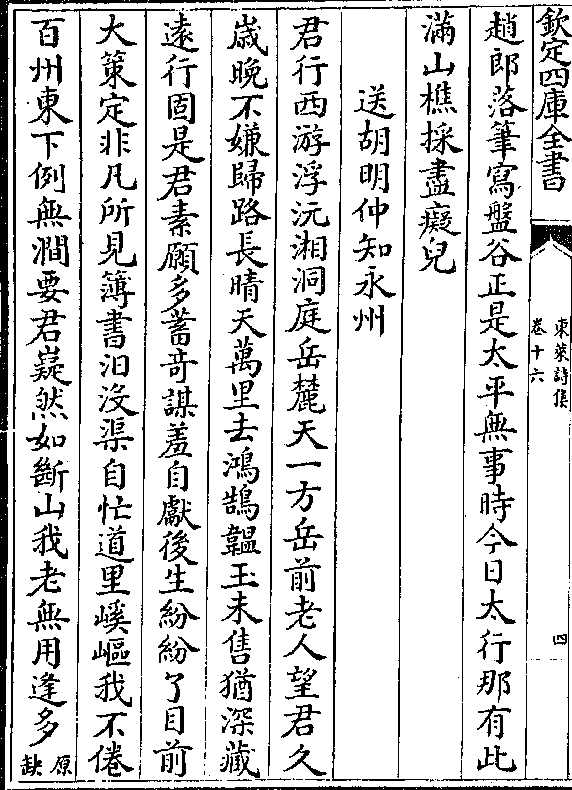 欽定四庫全書
東萊詩集
卷十六
四
趙郎落筆寫盤谷正是太平無事時今日太行那有此
滿山樵採盡癡兒
送胡明仲知永州
君行西游浮沅湘洞庭岳麓天一方岳前老人望君久
歳晚不嫌歸路長晴天萬里去鴻鵠韞玉未售猶深藏
遠行固是君素願多蓄竒謀羞自獻後生紛紛了目前
大策定非凡所見簿書汨沒渠自忙道里嶮嶇我不倦
百州東下例無澗要君嶷然如斷山我老無用逢多
原缺